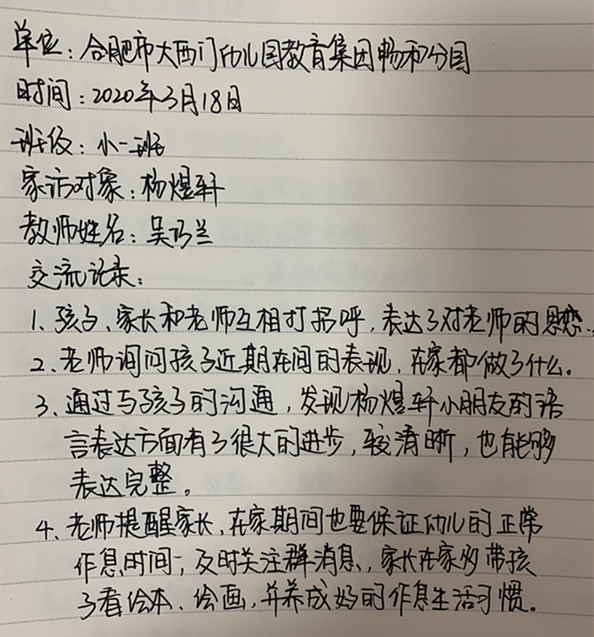 单位：合肥市大西门幼儿园教育集团畅和分园
时间：2020年3月18日
班级：小一班
家访对象：杨煜轩
教师姓名：吴巧兰
交流记录：
1、孩子、家长和老师互相打招呼，表达了对老师的思恋.
2、老师询问孩子近期在间的表现，在家都做了什么。
3、通过与孩子的沟通，发现杨煜轩小朋友的语
言表达方面有了很大的进步，较清晰，也能够
表达完整。
4、老师提醒家长，在家期间也要保证幼儿的正常
作息时间，及时关注群消息，家长在家多带孩
子看绘本、绘画，并养成好的作息生活习惯。